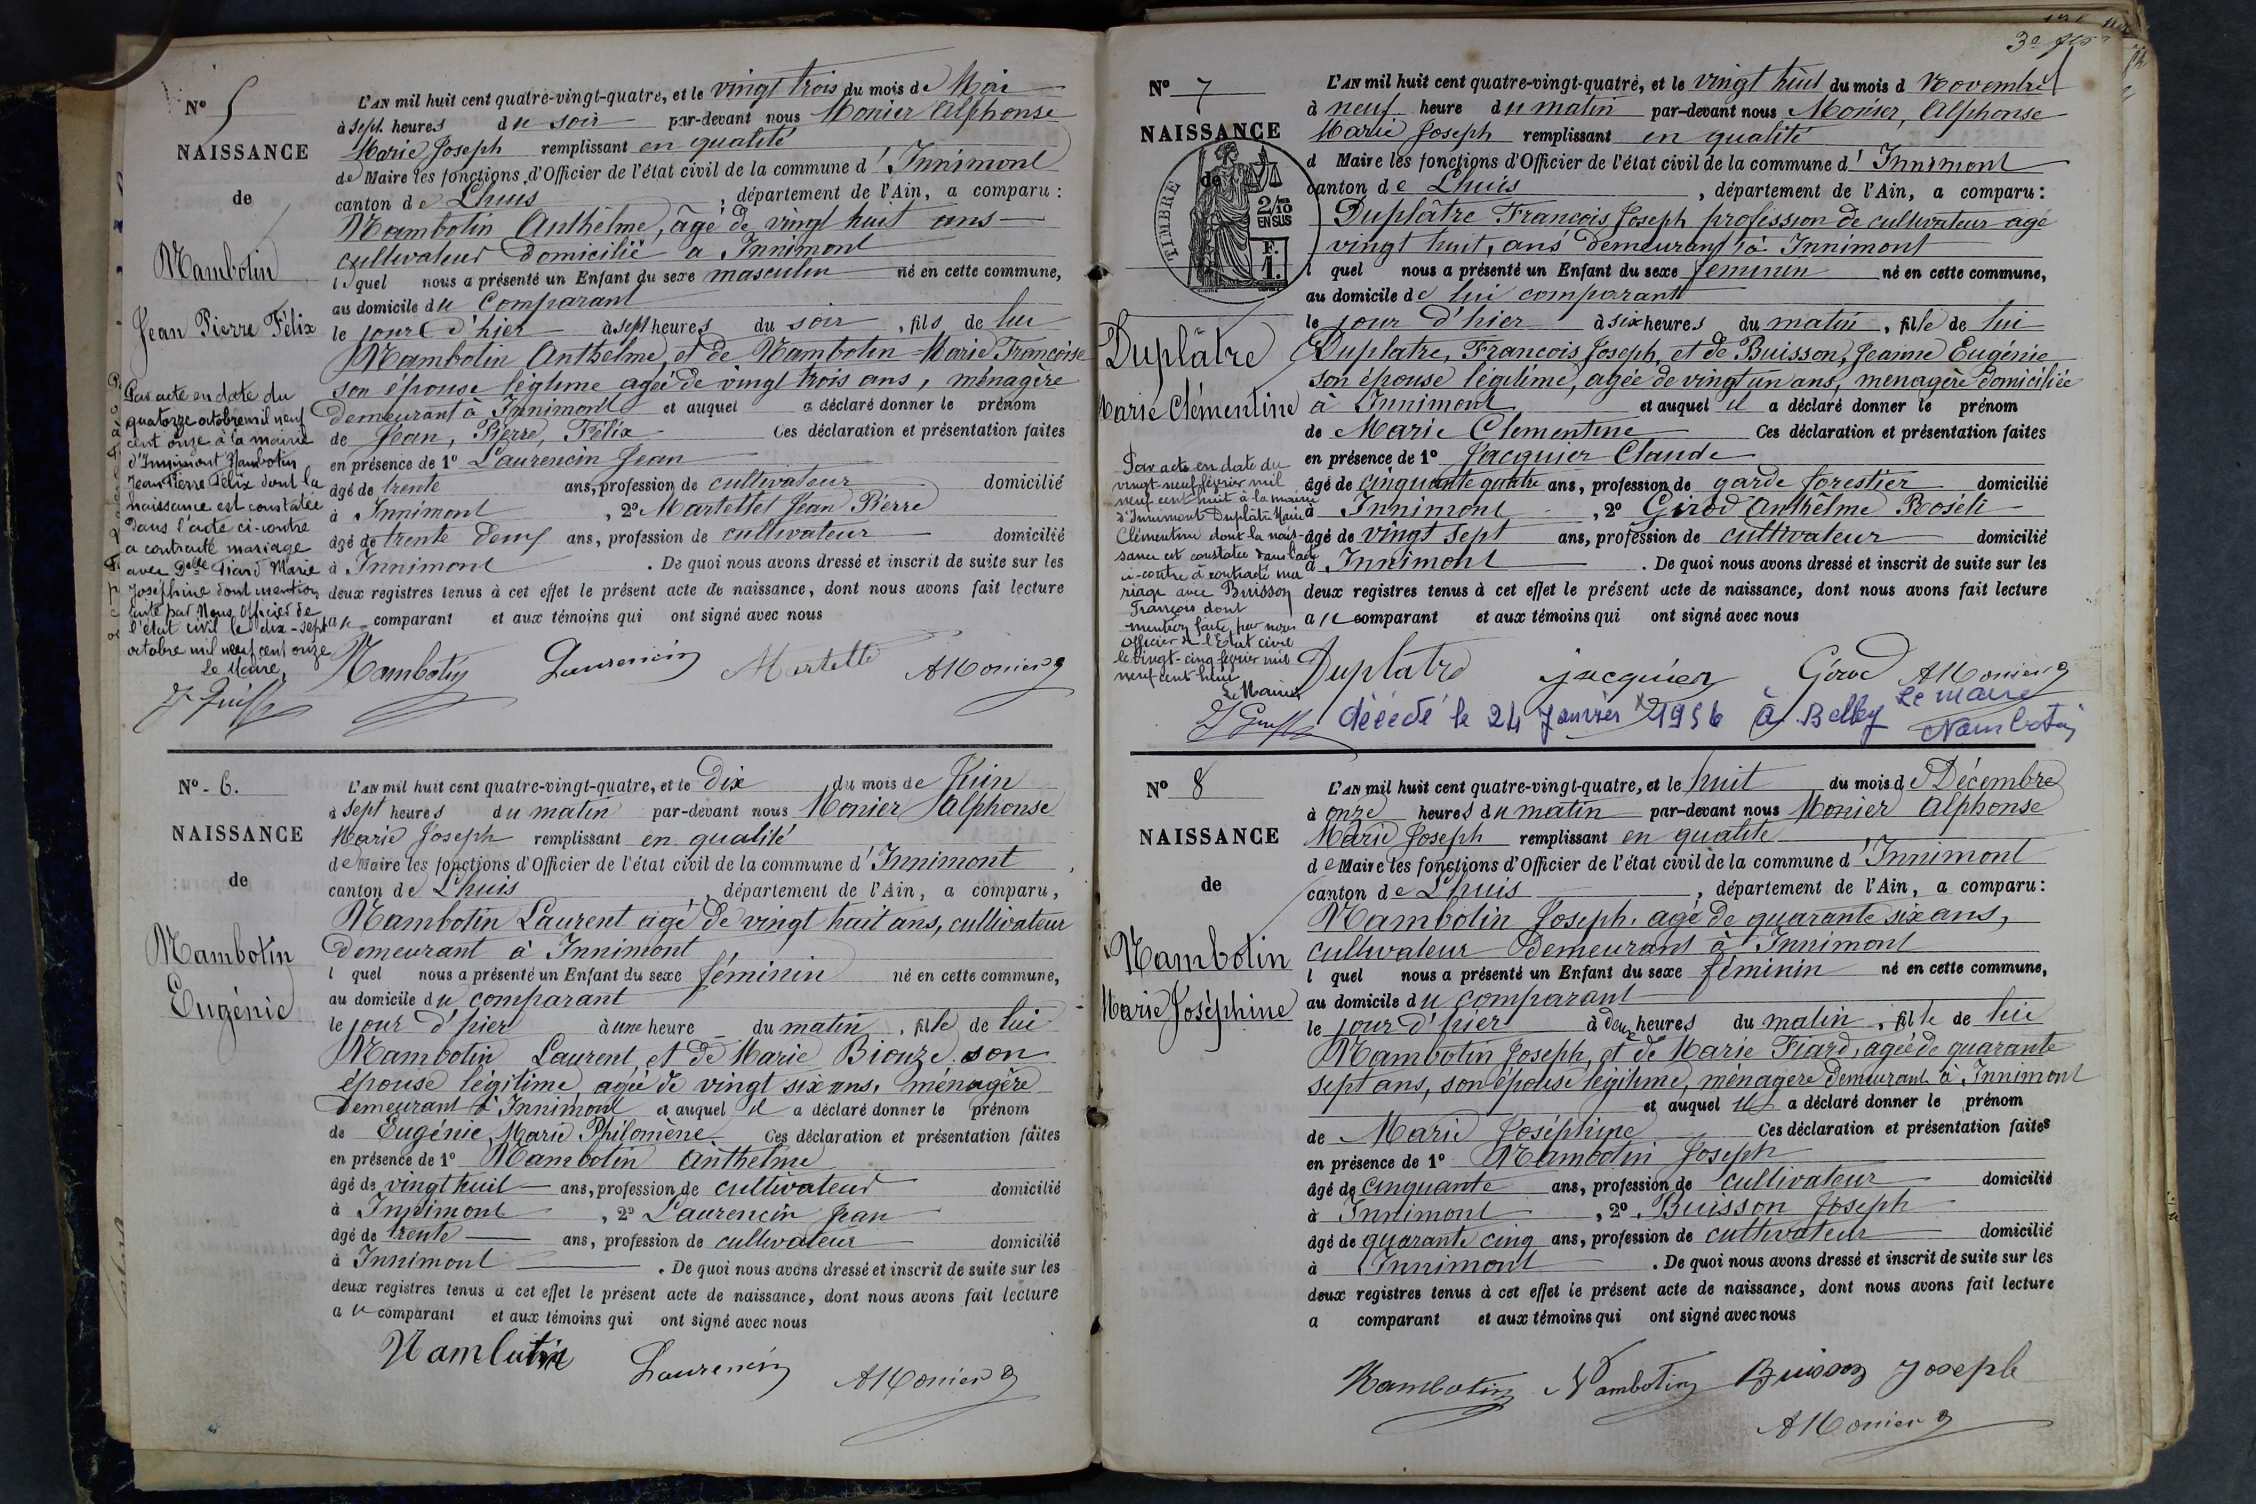 N° 5
NAISSANCE
de
Nambotin
Jean Pierre Félix
Par acte en date du
quatorze octobre mil neuf
cent onze à la mairie
d'Innimont Nambotin
Jean Pierre Félix dont la
naissance est constatée
dans l'acte ci-contre
a contracté mariage
avec Delle Fiard Marie
Joséphine dont mention
faite par Nous Officier de
l'état civil le dix-sept
octobre mil neuf cent onze
Le Maire,
L'AN mil huit cent quatre-vingt-quatre, et le vingt trois du mois de Mai
à sept heures du soir par-devant nous Monier Alphonse
Marie Joseph remplissant en qualité
de Maire les fonctions d'Officier de l'état civil de la commune d'Innimont
canton de Lhuis, département de l'Ain, a comparu :
Nambotin Anthelme, âgé de vingt huit ans
cultivateur domicilié a Innimont
lequel nous a présenté un Enfant du sexe masculin né en cette commune,
au domicile du Comparant
le jour d'hier à sept heures du soir, fils de lui
Nambotin Anthelme, et de Nambotin Marie Françoise
son épouse légitime agée de vingt trois ans, ménagère
demeurant à Innimont et auquel a déclaré donner le prénom
de Jean, Pierre, Félix Ces déclaration et présentation faites
en présence de 1° Laurencin Jean
âgé de trente ans, profession de cultivateur domicilié
à Innimont, 2° Martettet Jean Pierre
âgé de trente deux ans, profession de cultivateur domicilié
à Innimont. De quoi nous avons dressé et inscrit de suite sur les
deux registres tenus à cet effet le présent acte de naissance, dont nous avons fait lecture
au comparant et aux témoins qui ont signé avec nous
Nambotin Laurencin Martettet AMonier
N° 6.
NAISSANCE
de
Nambotin
Eugénie
L'AN mil huit cent quatre-vingt-quatre, et le Dix du mois de Juin
à sept heures du matin par-devant nous Monier Alphonse
Marie Joseph remplissant en qualité
de Maire les fonctions d'Officier de l'état civil de la commune d'Innimont
canton de Lhuis, département de l'Ain, a comparu,
Nambotin Laurent agé de vingt huit ans, cultivateur
demeurant à Innimont
l quel nous a présenté un Enfant du sexe féminin né en cette commune,
au domicile du comparant
le jour d'hier à une heure du matin, fille de lui
Nambotin Laurent, et de Marie Biouze son
épouse légitime, agée de vingt six ans, ménagère
demeurant à Innimont et auquel il a déclaré donner le prénom
de Eugénie, Marie Philomène Ces déclaration et présentation faites
en présence de 1° Nambotin Anthelme
âgé de vingt huit ans, profession de cultivateur domicilié
à Innimont, 2° Laurencin Jean
âgé de trente ans, profession de cultivateur domicilié
à Innimont. De quoi nous avons dressé et inscrit de suite sur les
deux registres tenus à cet effet le présent acte de naissance, dont nous avons fait lecture
au comparant et aux témoins qui ont signé avec nous
Nambotin Laurencin AMonier
N° 7
NAISSANCE
de
TIMBRE
2/10
EN SUS
F.
1.
Duplâtre
Marie Clémentine
Par acte en date du
vingt-neuf février mil
neuf cent huit à la mairie
d'Innimont Duplâtre Marie
Clémentine dont la nais-
sance est constatée dans l'acte
ci-contre a contracté ma
riage avec Buisson
François dont
mention faite par nous
Officier de l'Etat civil
le vingt-cinq février mil
neuf cent huit
Le Maire
L'AN mil huit cent quatre-vingt-quatre, et le vingt huit du mois d Novembre
à neuf heure du matin par-devant nous Monier, Alphonse
Marie Joseph remplissant en qualité
d Maire les fonctions d'Officier de l'état civil de la commune d'Innimont
canton de Lhuis, département de l'Ain, a comparu :
Duplâtre François Joseph profession de cultivateur agé
vingt huit, ans demeurant à Innimont
l quel nous a présenté un Enfant du sexe féminin né en cette commune,
au domicile de lui comparant
le jour d'hier à six heures du matin, fille de lui
Duplatre, Francois Joseph, et de Buisson, Jeanne Eugénie
son épouse légitime, agée de vingt un ans, menagère domiciliée
à Innimont et auquel il a déclaré donner le prénom
de Marie Clementine Ces déclaration et présentation faites
en présence de 1° Jacquier Claude
âgé de cinquante quatre ans, profession de garde forestier domicilié
à Innimont, 2° Girod Anthelme Roséli
âgé de vingt sept ans, profession de cultivateur domicilié
à Innimont. De quoi nous avons dressé et inscrit de suite sur les
deux registres tenus à cet effet le présent acte de naissance, dont nous avons fait lecture
au comparant et aux témoins qui ont signé avec nous
Duplatre Jacquier Girod AMonier
décédé le 24 Janvier 1956 à Belley Le Maire
Nambotin
N° 8
NAISSANCE
de
Nambotin
Marie Joséphine
L'AN mil huit cent quatre-vingt-quatre, et le huit du mois de Décembre
à onze heures du matin par-devant nous Monier Alphonse
Marie Joseph remplissant en qualité
de Maire les fonctions d'Officier de l'état civil de la commune d'Innimont
canton de Lhuis, département de l'Ain, a comparu :
Nambotin Joseph, agé de quarante six ans,
cultivateur demeurant à Innimont
l quel nous a présenté un Enfant du sexe féminin né en cette commune,
au domicile du comparant
le jour d'hier à deux heures du matin, fille de lui
Nambotin Joseph, et de Marie Fiard, agée de quarante
sept ans, son épouse légitime, ménagère demeurant à Innimont
et auquel il a déclaré donner le prénom
de Marie Joséphine Ces déclaration et présentation faites
en présence de 1° Nambotin Joseph
âgé de cinquante ans, profession de cultivateur domicilié
à Innimont, 2° Buisson Joseph
âgé de quarante cinq ans, profession de cultivateur domicilié
à Innimont. De quoi nous avons dressé et inscrit de suite sur les
deux registres tenus à cet effet le présent acte de naissance, dont nous avons fait lecture
a comparant et aux témoins qui ont signé avec nous
Nambotin Nambotin Buisson Joseph
AMonier